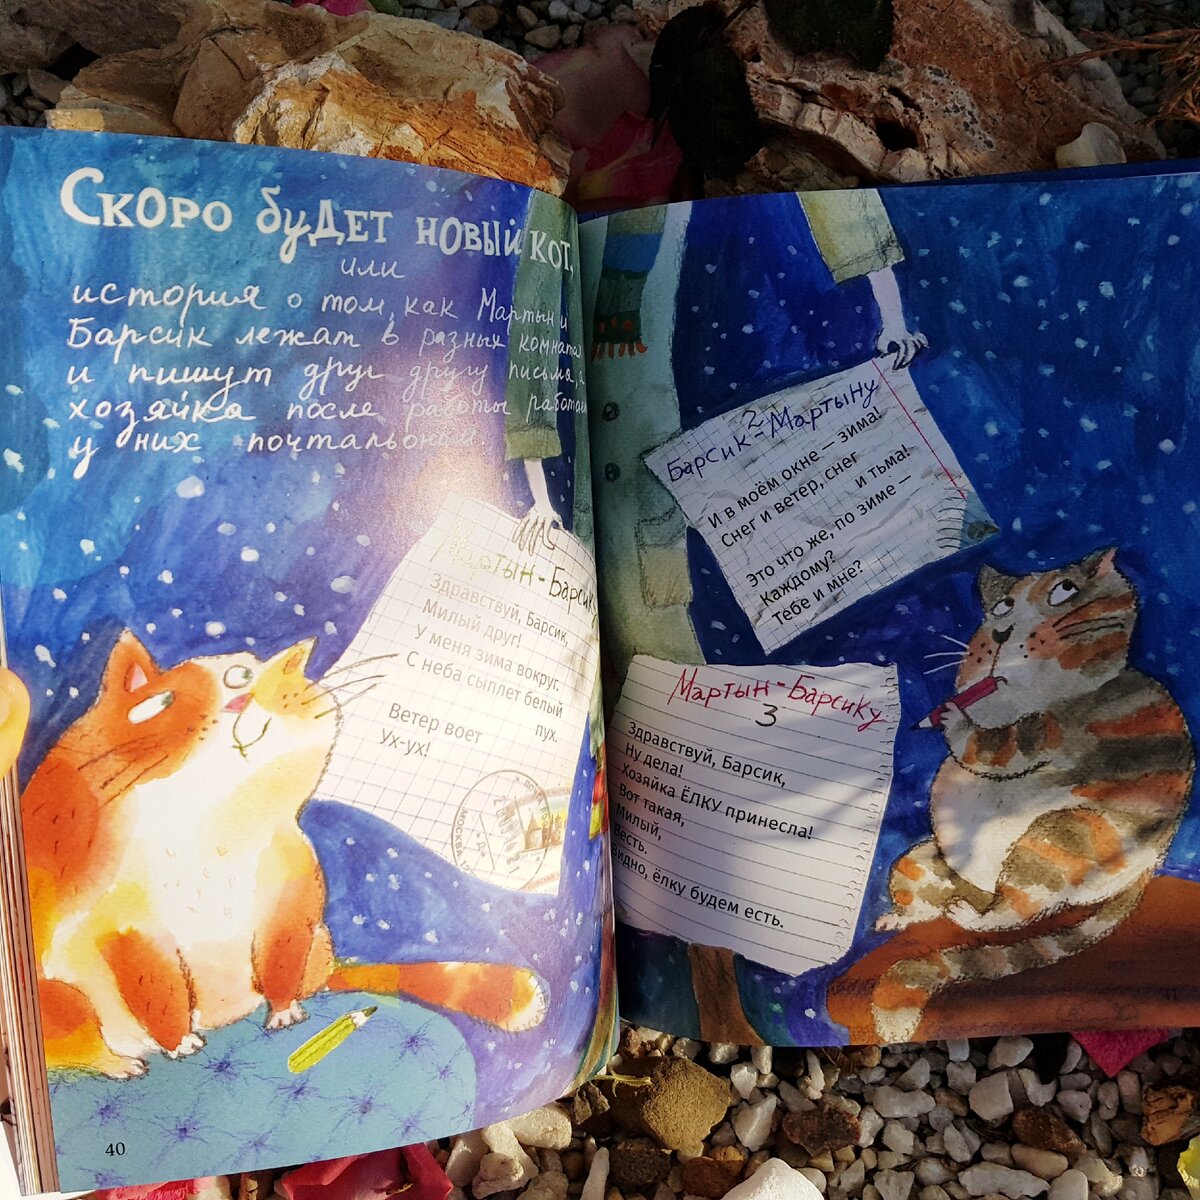 Скоро будет новый кот,
или
история о том, как Мартын и
Барсик лежат в разных комнатах
и пишут друг другу письма, а
хозяйка после работы работает
у них почтальоном.
Мартын-Барсику
Здравствуй, Барсик,
Милый друг!
У меня зима вокруг.
С неба сыплет белый
пух.
Ветер воет
Ух-ух!
МОСКВА
40
2
Барсик-Мартыну
И в моём окне — зима!
Снег и ветер, снег
и тьма!
Это что же, по зиме —
Каждому?
Тебе и мне?
Мартын-Барсику
3
Здравствуй, Барсик,
Ну дела!
Хозяйка ЁЛКУ принесла!
Вот такая,
Милый,
Весть.
Видно, ёлку будем есть.
41